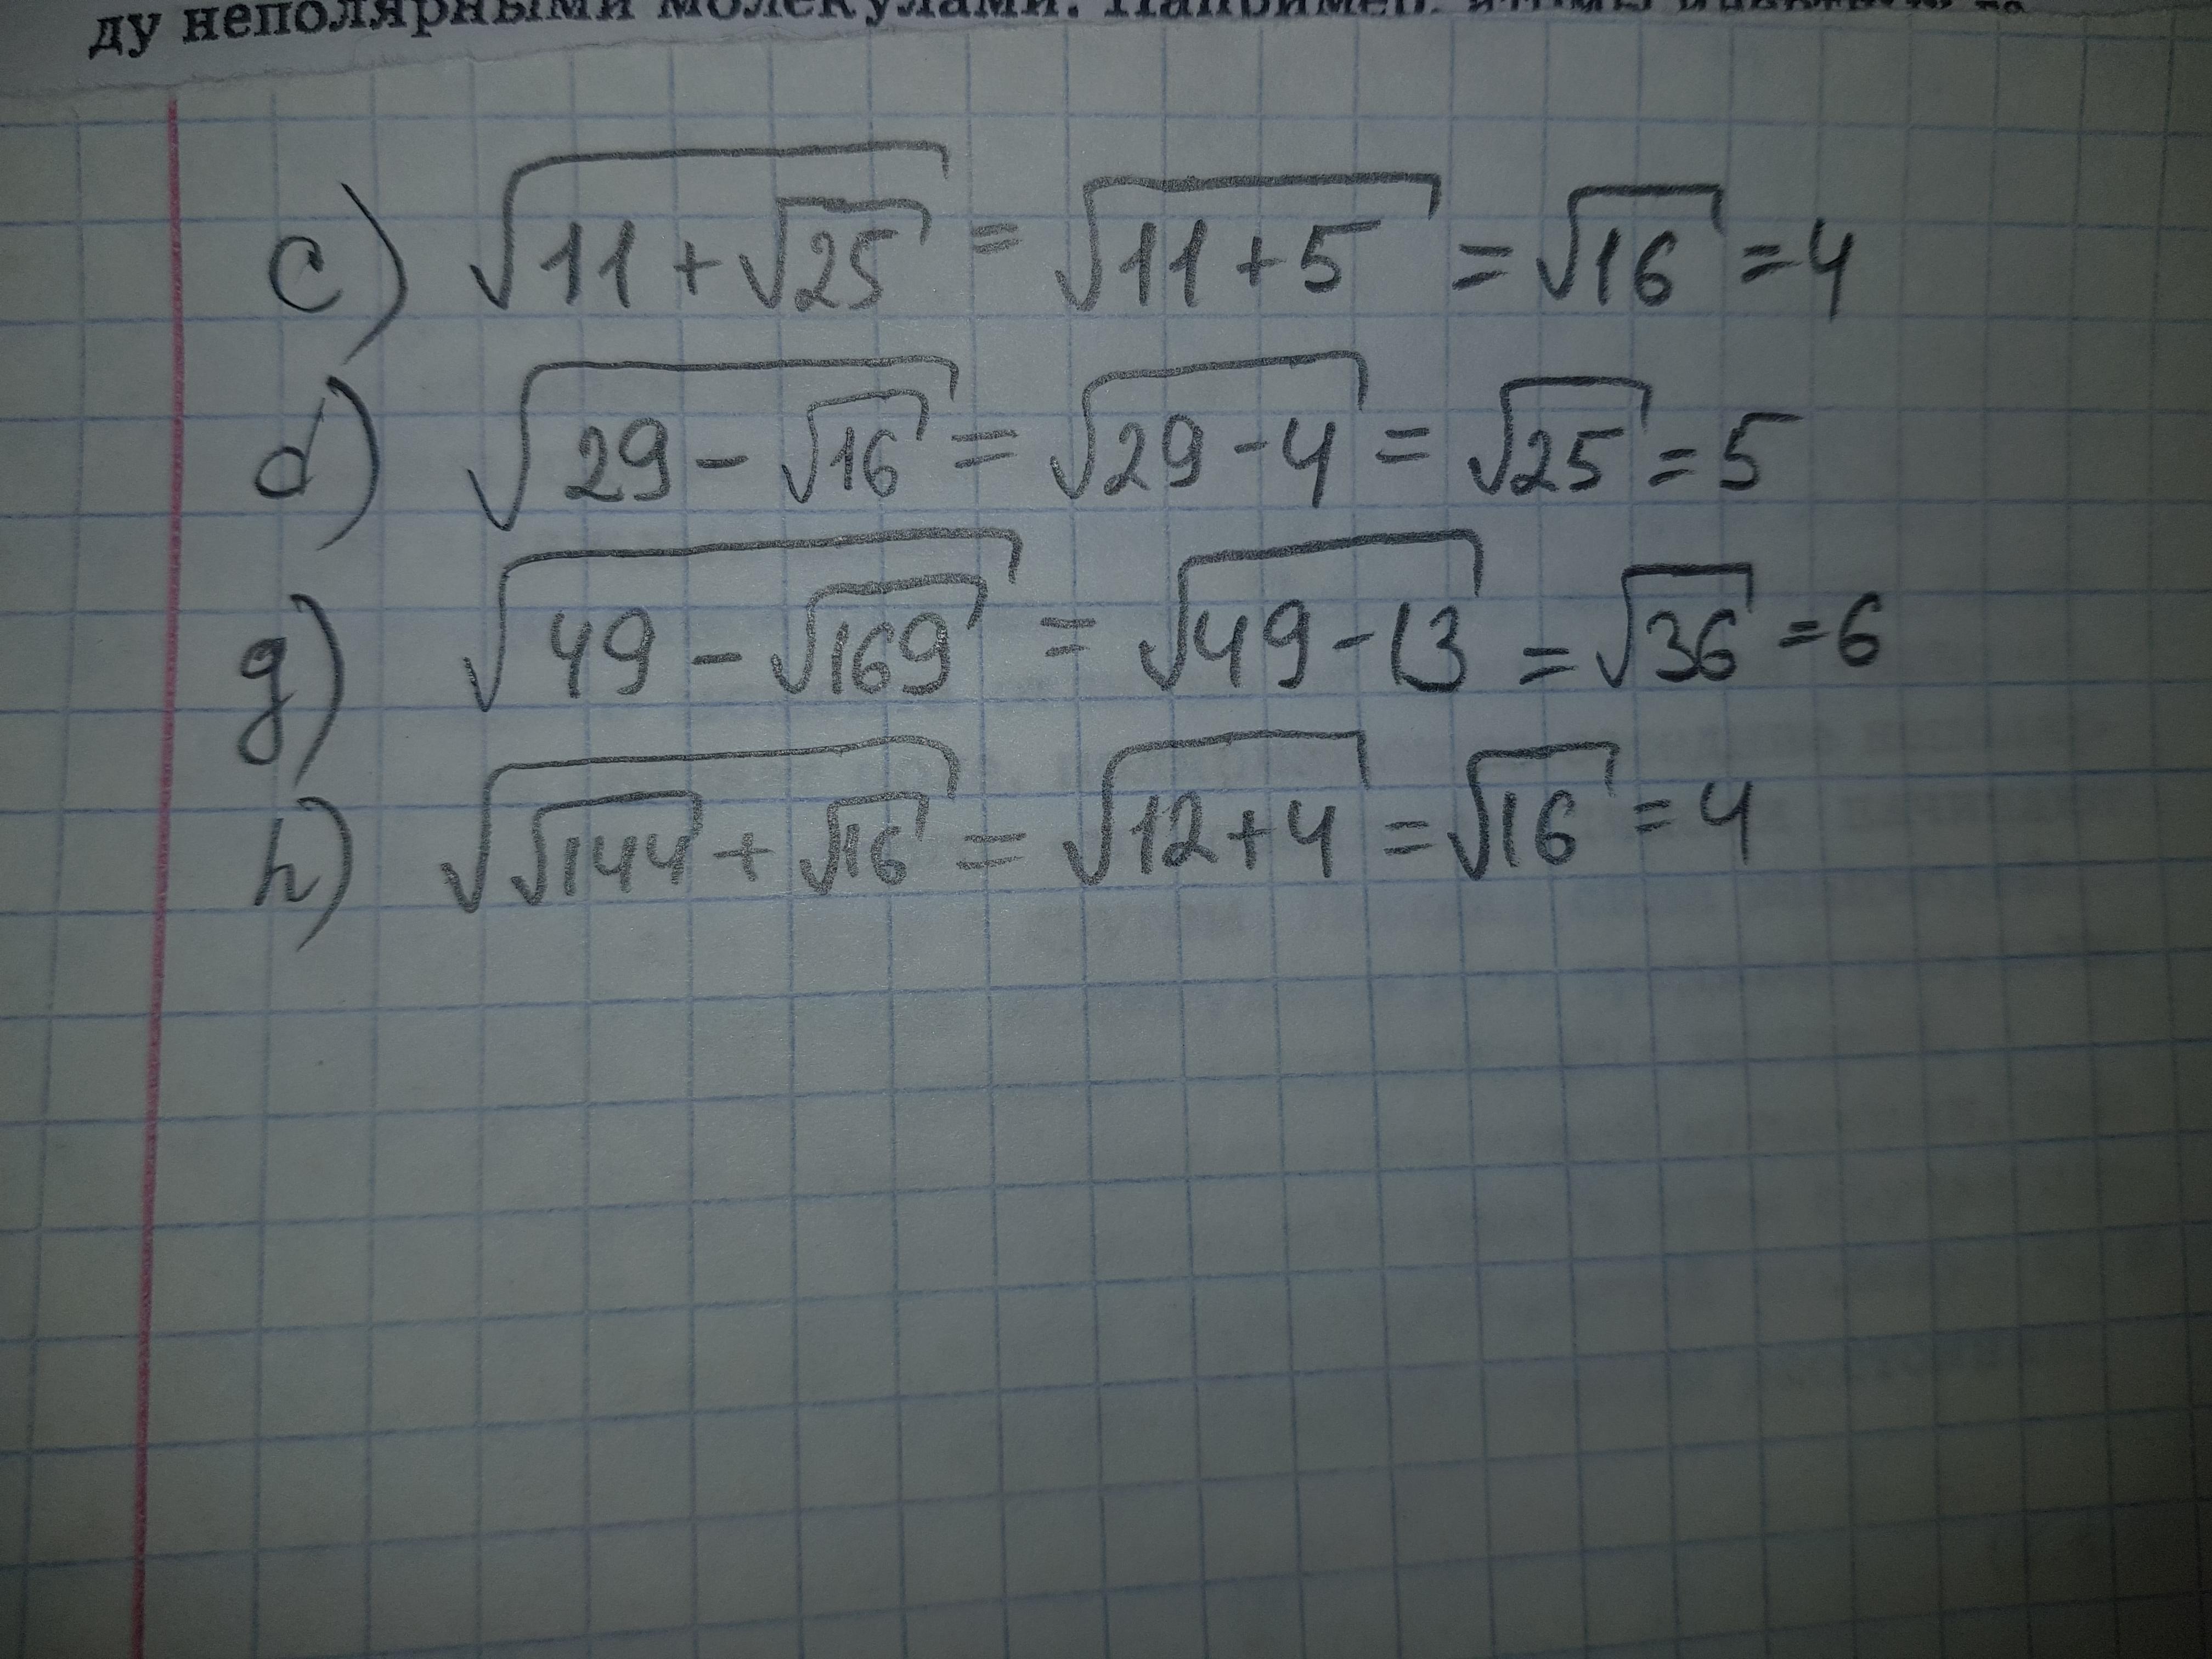 ду неполярными молекулами. Например, атомы
c) √(11 + √25) = √(11 + 5) = √16 = 4
d) √(29 - √16) = √(29 - 4) = √25 = 5
g) √(49 - √169) = √(49 - 13) = √36 = 6
h) √(√144 + √16) = √(12 + 4) = √16 = 4